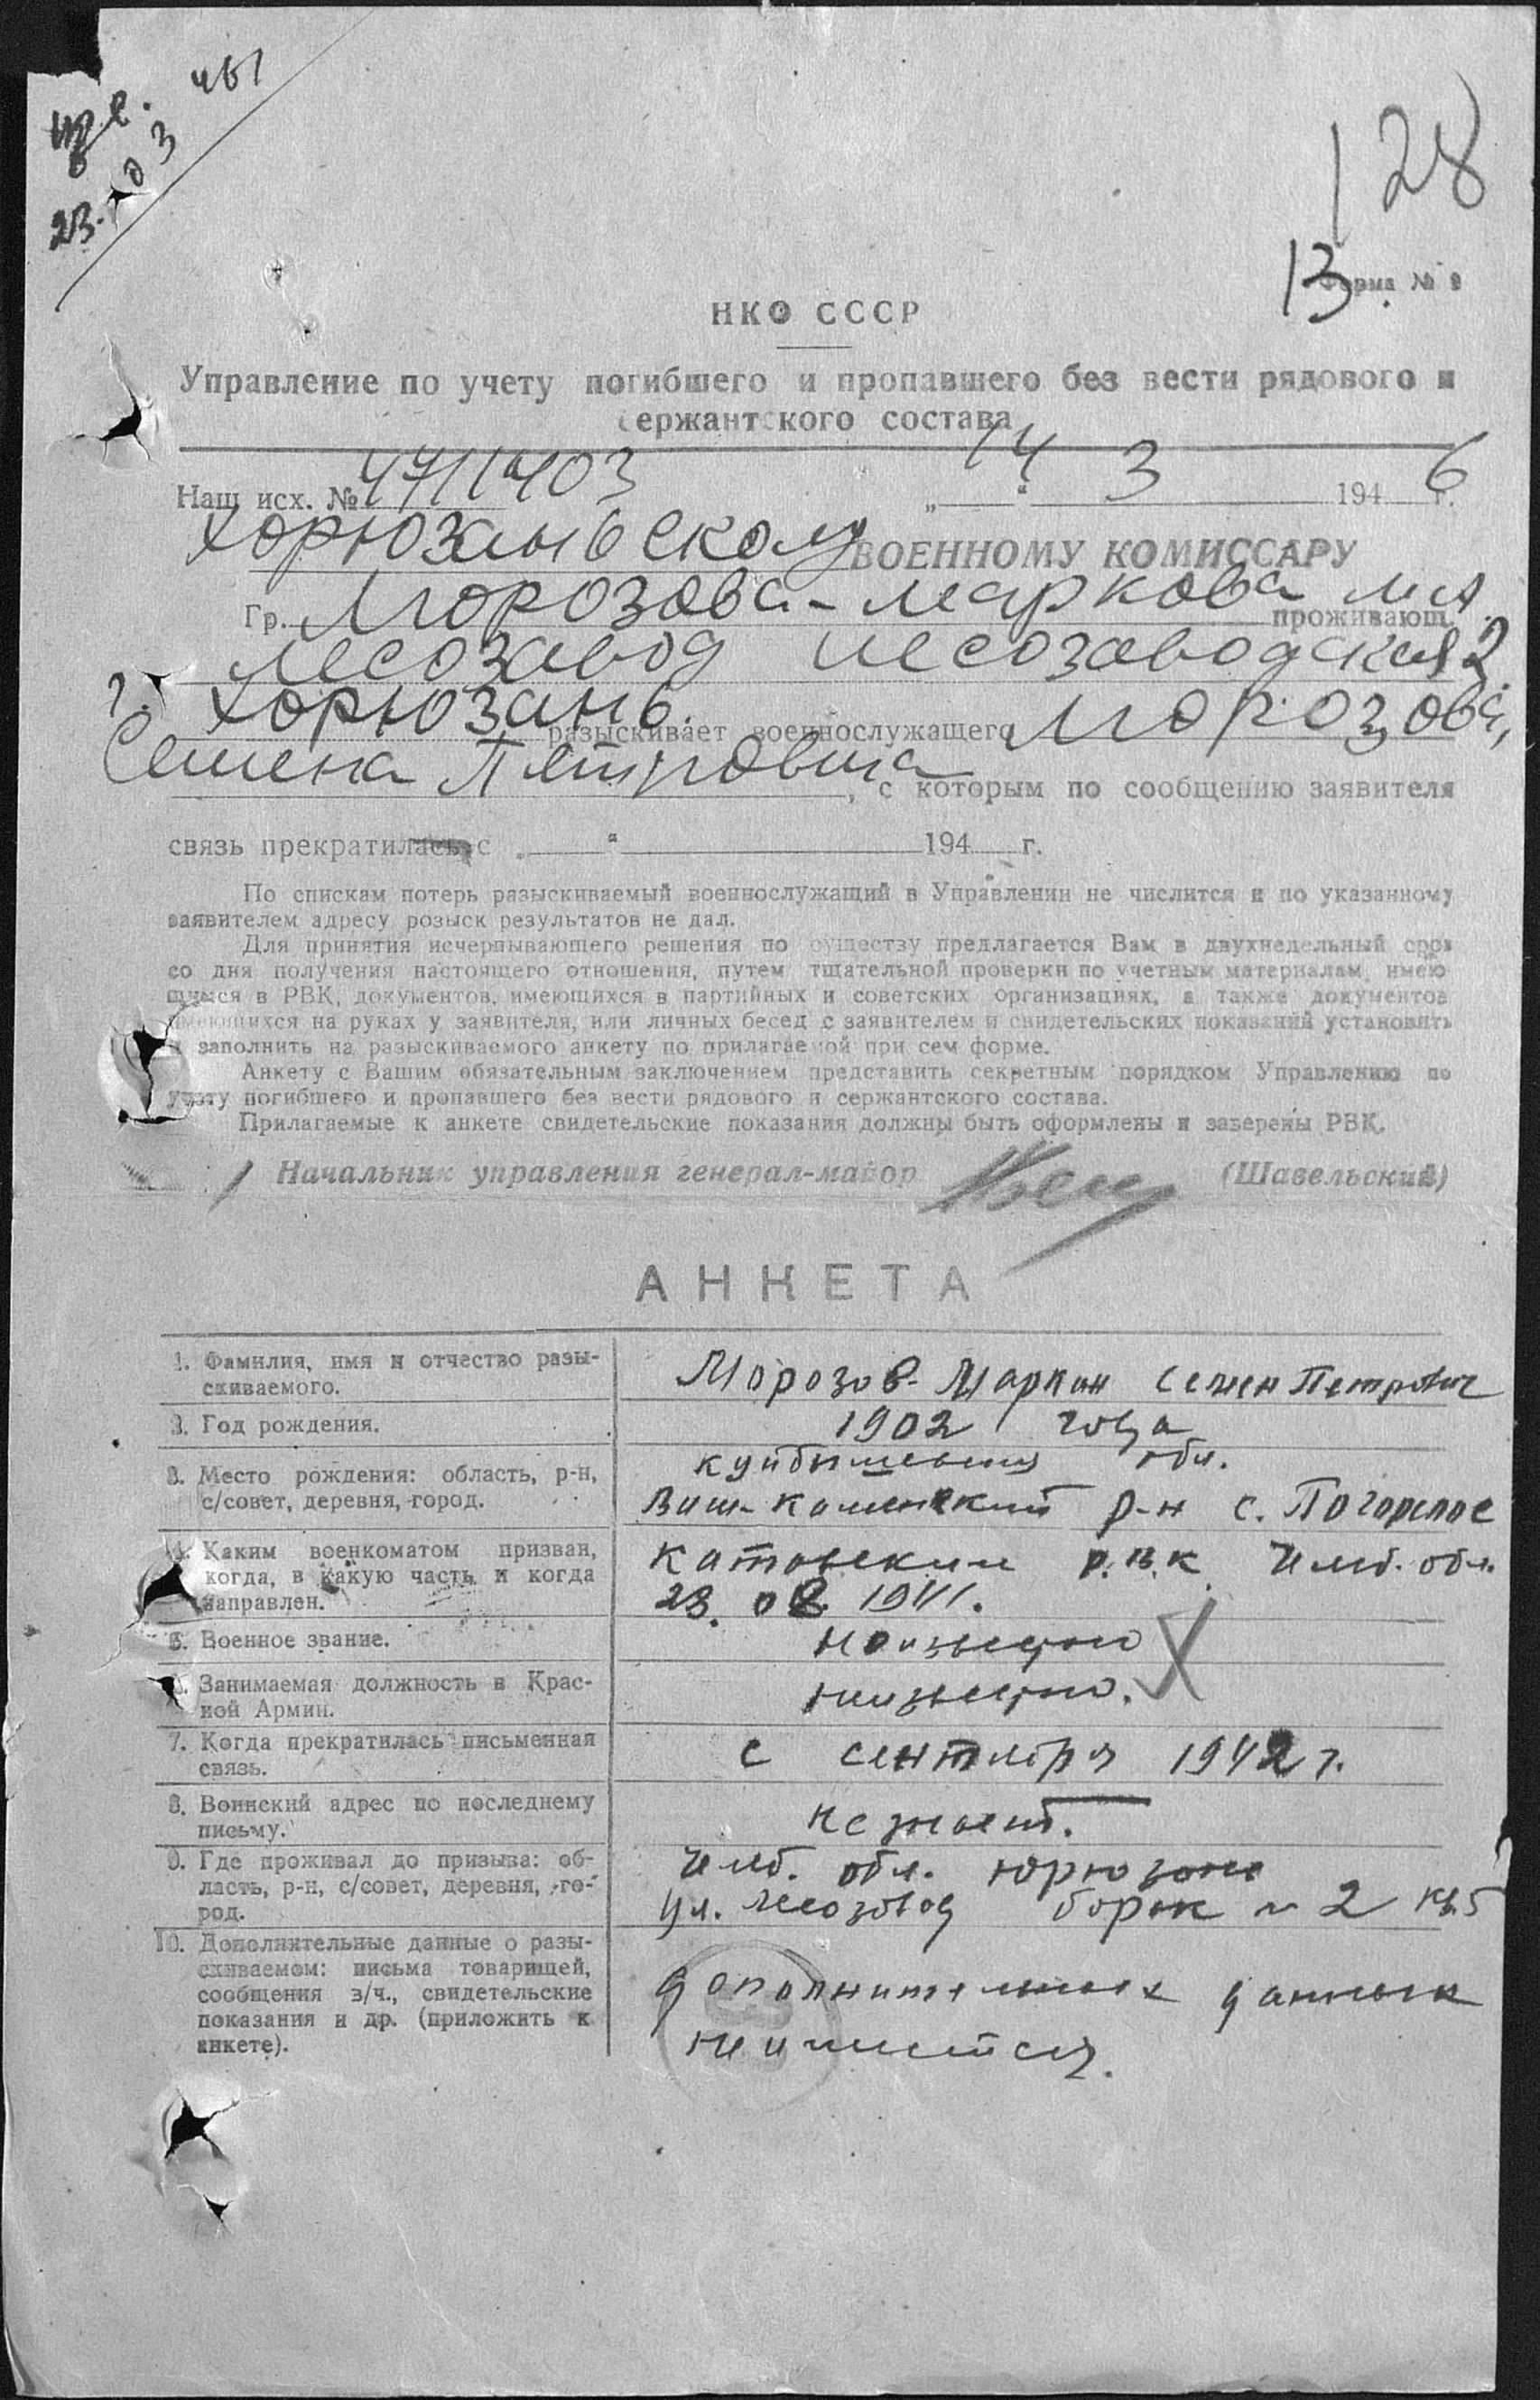 128
13.
Форма №
НКО СССР
Управление по учету погибшего и пропавшего без вести рядового и
сержантского состава
Наш исх. № „14“ 3 1946 г.
Хорюзаньскому ВОЕННОМУ КОМИССАРУ
Гр. Морозова-Маркова М А. проживающ.
лесозавод Лесозаводская 2.
г. Хорюзань. разыскивает военнослужащего Морозова,
Семена Петровича, с которым по сообщению заявителя
связь прекратилась с „ “ 194 г.
По спискам потерь разыскиваемый военнослужащий в Управлении не числится и по указанному
заявителем адресу розыск результатов не дал.
Для принятия исчерпывающего решения по существу предлагается Вам в двухнедельный срок
со дня получения настоящего отношения, путем тщательной проверки по учетным материалам, имею
щимся в РВК, документов, имеющихся в партийных и советских организациях, а также документов
имеющихся на руках у заявителя, или личных бесед с заявителем и свидетельских показаний установить
и заполнить на разыскиваемого анкету по прилагаемой при сем форме.
Анкету с Вашим обязательным заключением представить секретным порядком Управлению по
учету погибшего и пропавшего без вести рядового и сержантского состава.
Прилагаемые к анкете свидетельские показания должны быть оформлены и заверены РВК.
Начальник управления генерал-майор (Шавельский)
АНКЕТА
1. Фамилия, имя и отчество разы-
скиваемого.
Морозов-Маркин Семен Петрович
2. Год рождения.
1902 года
3. Место рождения: область, р-н,
с/совет, деревня, город.
Куйбышевский обл.
Виш-Каменский р-н с. Погорелое
4. Каким военкоматом призван,
когда, в какую часть и когда
направлен.
Катовским р.в.к. Члб. обл.
23. 08. 1941.
5. Военное звание.
неизвестно
6. Занимаемая должность в Крас-
ной Армии.
неизвестно.
7. Когда прекратилась письменная
связь.
с сентября 1942 г.
8. Воинский адрес по последнему
письму.
не знает.
9. Где проживал до призыва: об-
ласть, р-н, с/совет, деревня, го-
род.
Члб. обл. Юрюзань
ул. Лесозавод барак № 2 кв. 5
10. Дополнительные данные о разы-
скиваемом: письма товарищей,
сообщения в/ч., свидетельские
показания и др. (приложить к
анкете).
дополнительных данных
не имеется.